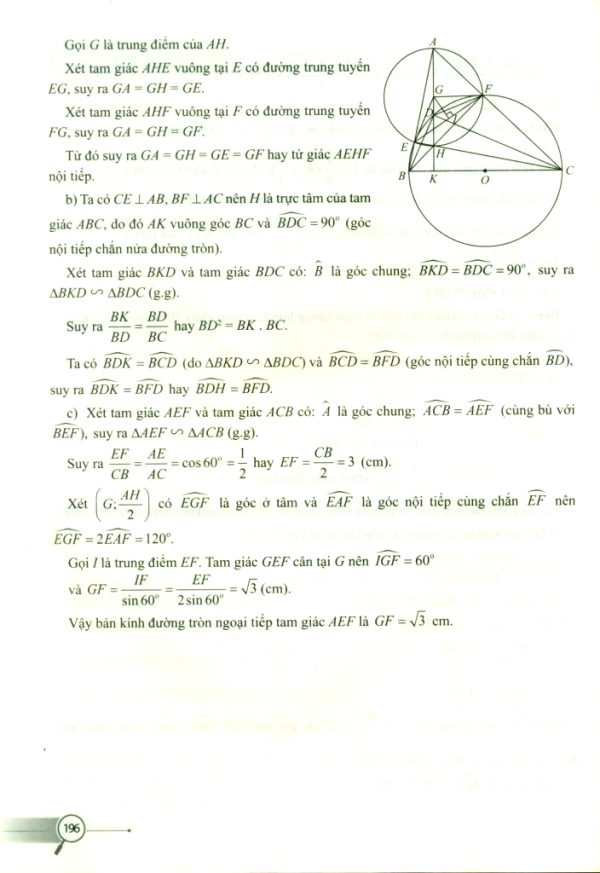 Gọi G là trung điểm của AH.
Xét tam giác AHE vuông tại E có đường trung tuyến
EG, suy ra GA = GH = GE.
Xét tam giác AHF vuông tại F có đường trung tuyến
FG, suy ra GA = GH = GF.
Từ đó suy ra GA = GH = GE = GF hay tứ giác AEHF
nội tiếp.
A
G
F
D
E
H
B
K
O
C
b) Ta có CE ⊥ AB, BF ⊥ AC nên H là trực tâm của tam
giác ABC, do đó AK vuông góc BC và \widehat{BDC} = 90° (góc
nội tiếp chắn nửa đường tròn).
Xét tam giác BKD và tam giác BDC có: \widehat{B} là góc chung; \widehat{BKD} = \widehat{BDC} = 90°, suy ra
ΔBKD ∽ ΔBDC (g.g).
Suy ra \frac{BK}{BD} = \frac{BD}{BC} hay BD² = BK . BC.
Ta có \widehat{BDK} = \widehat{BCD} (do ΔBKD ∽ ΔBDC) và \widehat{BCD} = \widehat{BFD} (góc nội tiếp cùng chắn \widehat{BD}),
suy ra \widehat{BDK} = \widehat{BFD} hay \widehat{BDH} = \widehat{BFD}.
c) Xét tam giác AEF và tam giác ACB có: \widehat{A} là góc chung; \widehat{ACB} = \widehat{AEF} (cùng bù với
\widehat{BEF}), suy ra ΔAEF ∽ ΔACB (g.g).
Suy ra \frac{EF}{CB} = \frac{AE}{AC} = cos60° = \frac{1}{2} hay EF = \frac{CB}{2} = 3 (cm).
Xét (G; \frac{AH}{2}) có \widehat{EGF} là góc ở tâm và \widehat{EAF} là góc nội tiếp cùng chắn \widehat{EF} nên
\widehat{EGF} = 2\widehat{EAF} = 120°.
Gọi I là trung điểm EF. Tam giác GEF cân tại G nên \widehat{IGF} = 60°
và GF = \frac{IF}{sin60°} = \frac{EF}{2sin60°} = √3 (cm).
Vậy bán kính đường tròn ngoại tiếp tam giác AEF là GF = √3 cm.
196